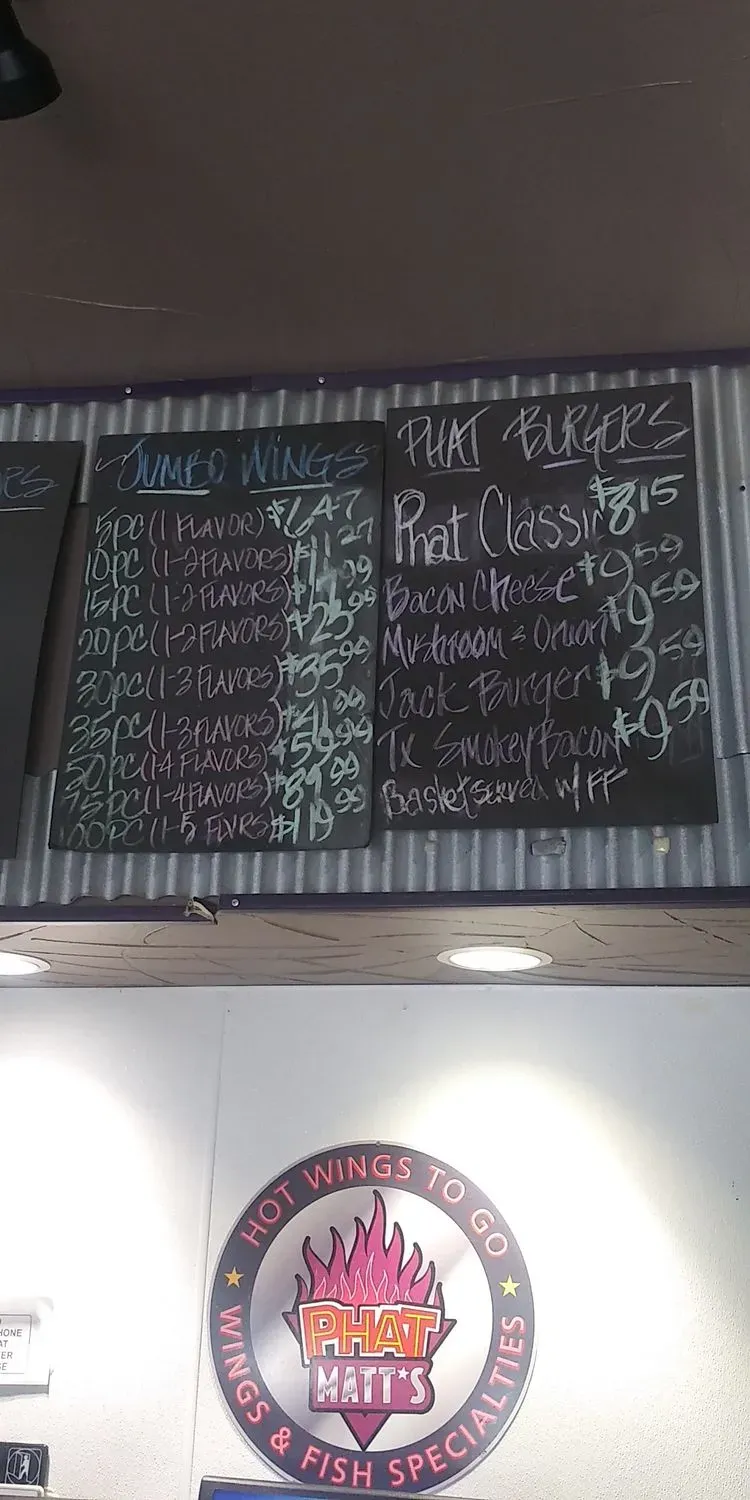 JUMBO WINGS
5PC (1 FLAVOR) $6.47
10PC (1-2 FLAVORS) $11.27
15PC (1-2 FLAVORS) 99
20PC (1-2 FLAVORS) $25.99
30PC (1-3 FLAVORS) $35.99
35PC (1-3 FLAVORS) $41.99
50PC (1-4 FLAVORS) $59.99
75PC (1-4 FLAVORS) $89.99
00PC (1-5 FLVRS) $119.99
PHAT BURGERS
Phat Classic $8.15
Bacon Cheese $9.59
Mushroom & Onion $9.59
Jack Burger $9.59
Tx Smokey Bacon $9.59
Basket served w/ FF
HOT WINGS TO GO
PHAT
MATT'S
WINGS & FISH SPECIALTIES
HONE
AT
ER
SE